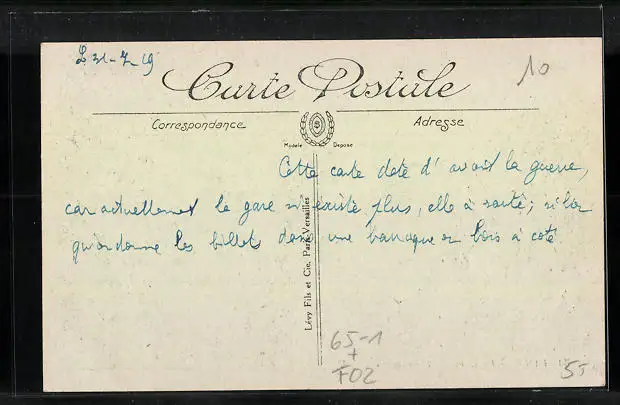 L 31-7-19
10
Carte Postale
Correspondance
Adresse
Modèle Déposé
Cette carte date d'avant la guerre,
car actuellement la gare n'existe plus, elle a sauté;
qu'on donne les billets dans une baraque en bois à coté
Lévy Fils et Cie, Paris-Versailles
65-1
+
F02
55